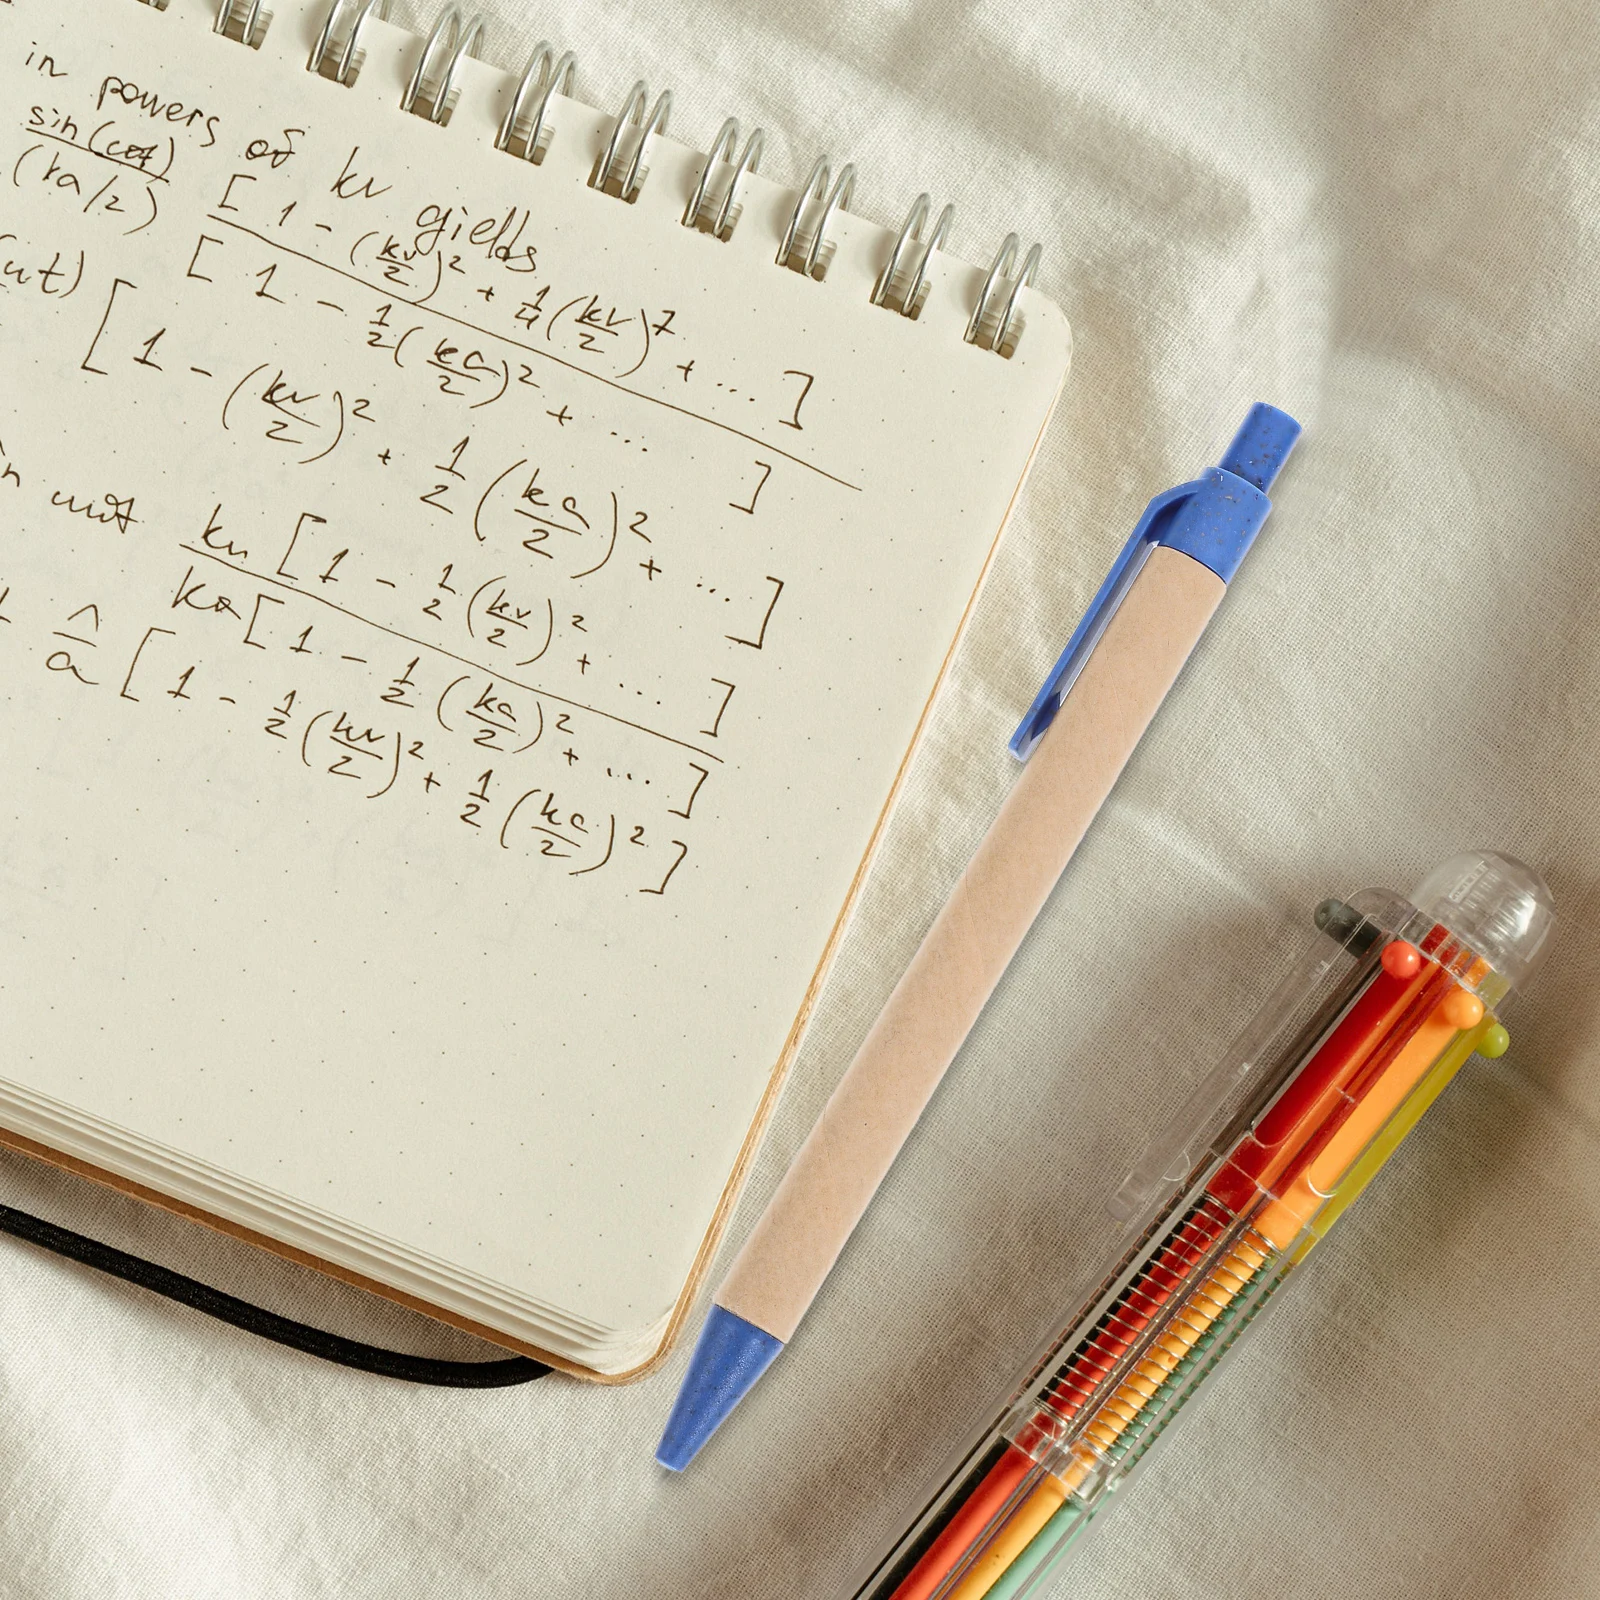 in powers of kv gields
sin(cot) / (ka/2) [1 - (kv/2)² + 1/4 (kv/2)⁷ + ...] / [1 - 1/2 (ka/2)² + ...]
ut) [1 - (kv/2)² + 1/2 (ka/2)² + ...]
unit kv [1 - 1/2 (kv/2)² + ...] / ka [1 - 1/2 (ka/2)² + ...]
^/a [1 - 1/2 (kv/2)² + 1/2 (ka/2)²]